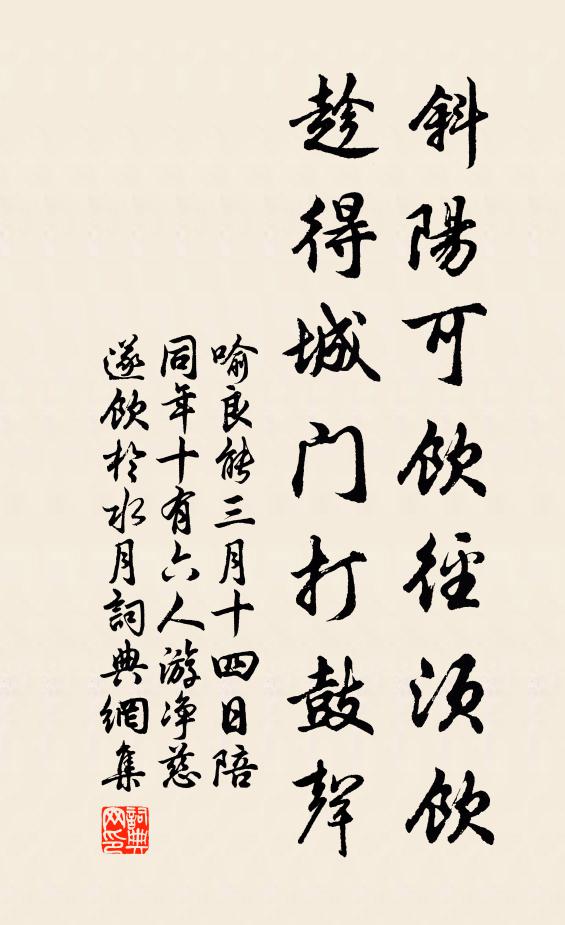 斜陽可飲徑須飲
趁得城门打鼓聲
喻良能三月十四日陪
同年十有六人游净慈
遂飲於水月詞典網集
詞典网印